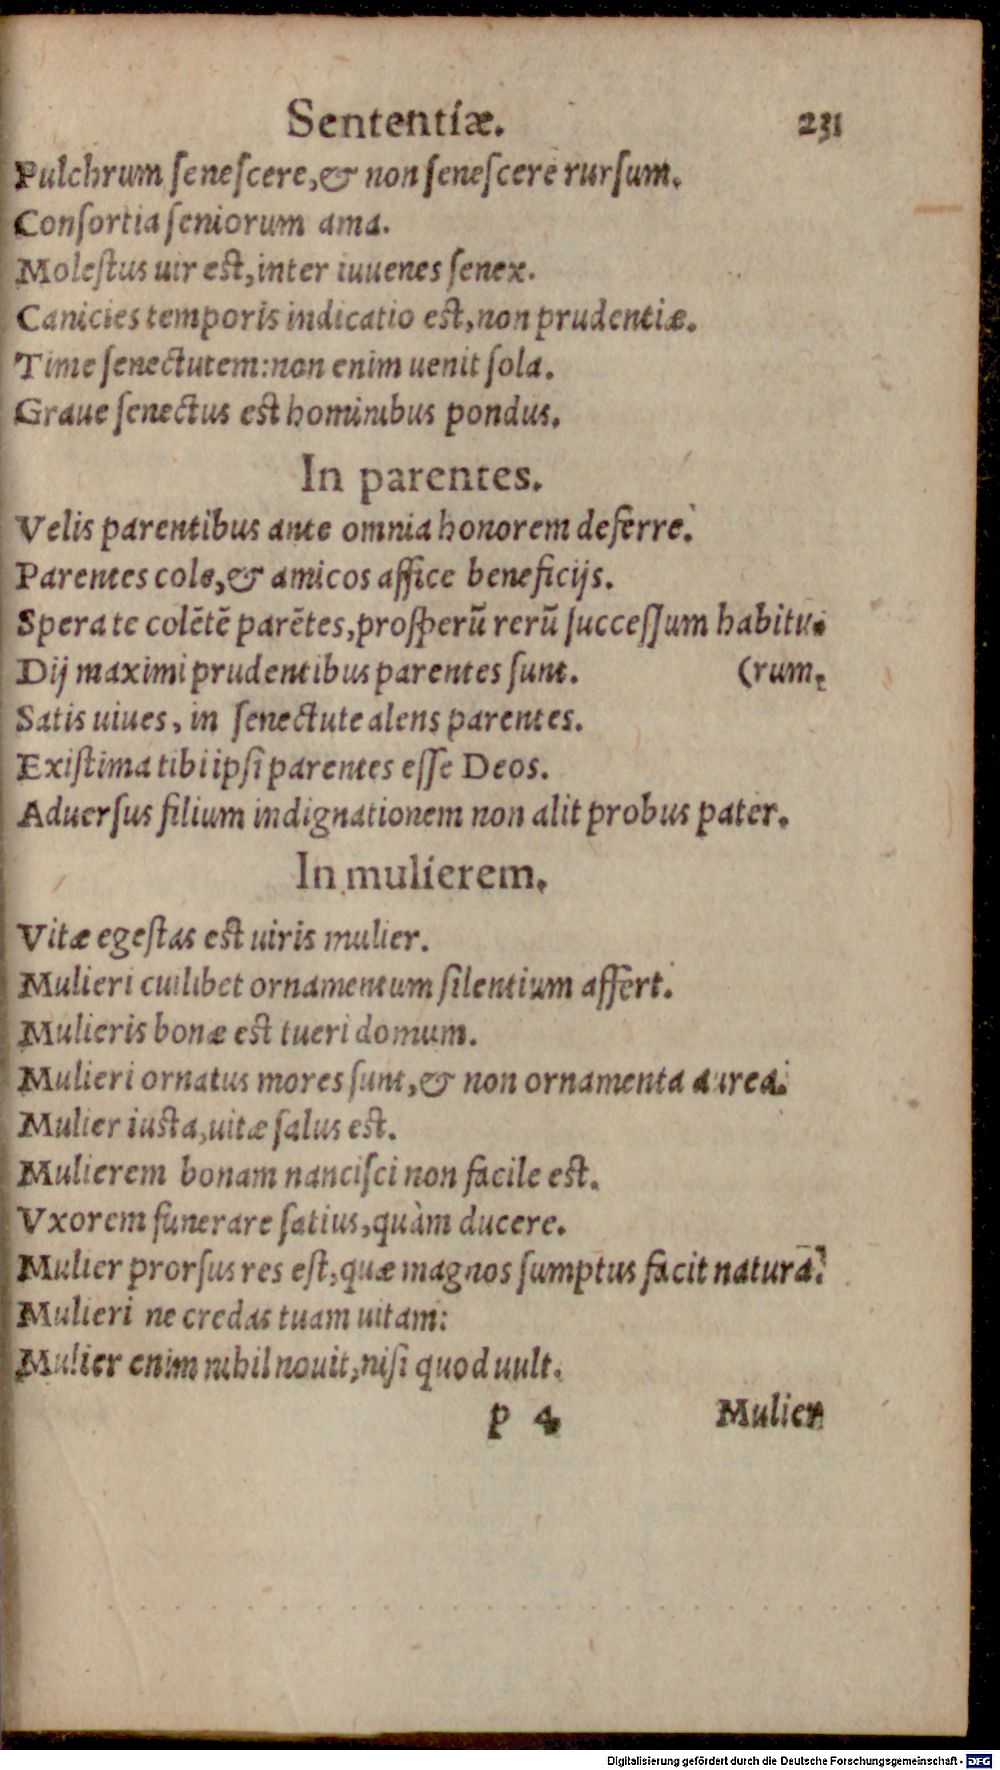 Sententiæ. 231
Pulchrum ſeneſcere,& non ſeneſcere rurſum.
Conſortia ſeniorum ama.
Moleſtus uir eſt,inter iuuenes ſenex.
Canicies temporis indicatio eſt,non prudentiæ.
Time ſenectutem:non enim uenit ſola.
Graue ſenectus eſt hominibus pondus.
In parentes.
Velis parentibus ante omnia honorem deferre.
Parentes cole,& amicos affice beneficijs.
Spera te colētē parētes,proſperū rerū ſucceſſum habitu-
Dij maximi prudentibus parentes ſunt. (rum.
Satis uiues, in ſenectute alens parentes.
Exiſtima tibi ipſi parentes eſſe Deos.
Aduerſus filium indignationem non alit probus pater.
In mulierem.
Vitæ egeſtas eſt uiris mulier.
Mulieri cuilibet ornamentum ſilentium affert.
Mulieris bonæ eſt tueri domum.
Mulieri ornatus mores ſunt,& non ornamenta aurea.
Mulier iuſta,uitæ ſalus eſt.
Mulierem bonam nanciſci non facile eſt.
Vxorem funerare ſatius,quàm ducere.
Mulier prorſus res eſt,quæ magnos ſumptus facit natura.
Mulieri ne credas tuam uitam:
Mulier enim nihil nouit,niſi quod uult.
p 4 Mulier
Digitalisierung gefördert durch die Deutsche Forschungsgemeinschaft - DFG